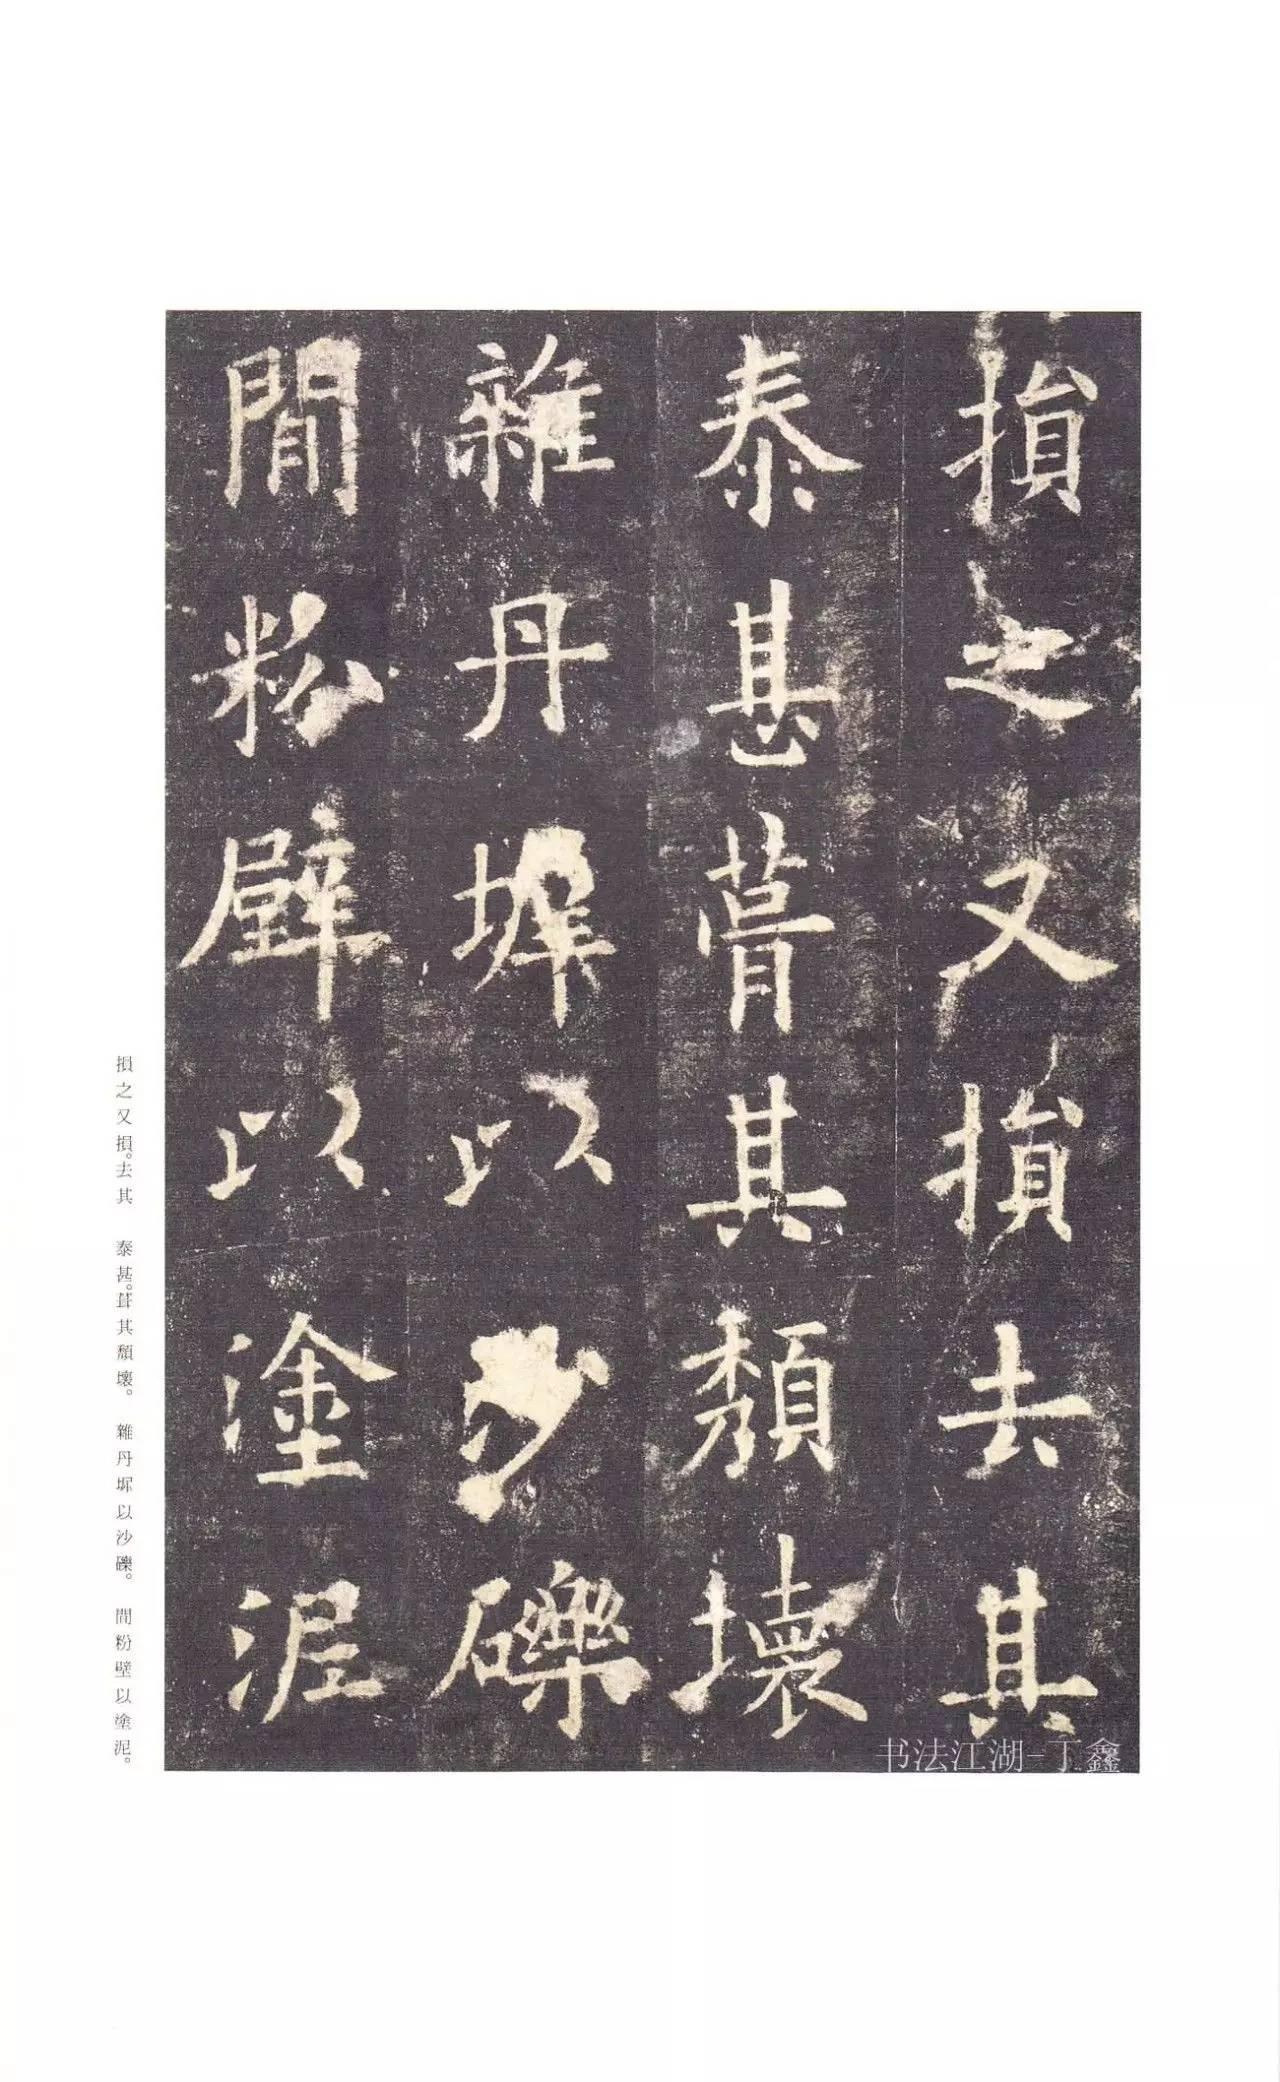 損之又損去其
泰甚葺其頹壞
雜丹墀以沙礫
間粉壁以塗泥
損之又損。去其　泰甚。葺其頹壞。　雜丹墀以沙礫。　間粉壁以塗泥。
书法江湖-丁鑫